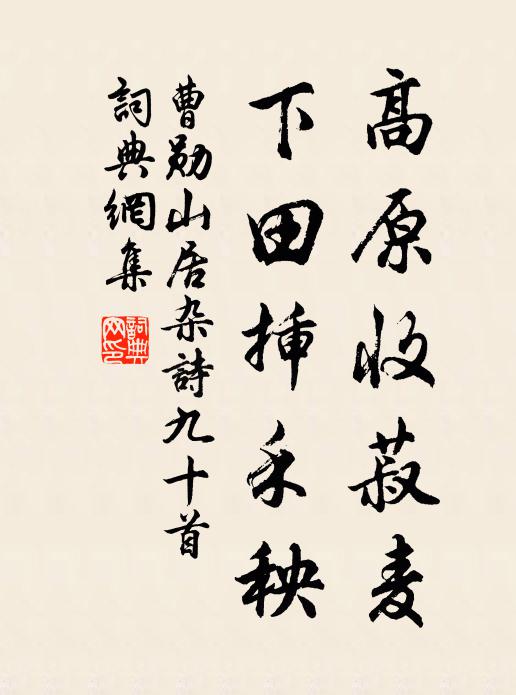 高原收菽麦
下田挿禾秧
曹勛山居杂詩九十首
詞典網集
詞典网印